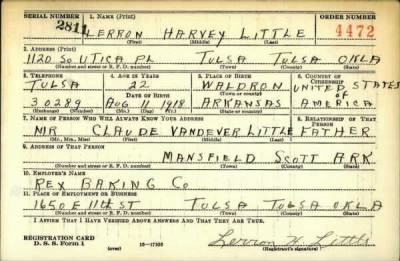 SERIAL NUMBER 1. NAME (Print) ORDER NUMBER
2811 LERRON HARVEY LITTLE 4472
(First) (Middle) (Last)
2. ADDRESS (Print)
1120 SO UTICA PL TULSA TULSA OKLA
(Number and street or R. F. D. number) (Town) (County) (State)
3. TELEPHONE 4. AGE IN YEARS 5. PLACE OF BIRTH 6. COUNTRY OF CITIZENSHIP
TULSA 22 WALDRON UNITED STATES
DATE OF BIRTH (Town or county) OF
30289 AUG 11 1918 ARKANSAS AMERICA
(Exchange) (Number) (Mo.) (Day) (Yr.) (State or country)
7. NAME OF PERSON WHO WILL ALWAYS KNOW YOUR ADDRESS 8. RELATIONSHIP OF THAT PERSON
MR CLAUDE VANDEVER LITTLE FATHER
(Mr., Mrs., Miss) (First) (Middle) (Last)
9. ADDRESS OF THAT PERSON
MANSFIELD SCOTT ARK
(Number and street or R. F. D. number) (Town) (County) (State)
10. EMPLOYER'S NAME
REX BAKING CO
11. PLACE OF EMPLOYMENT OR BUSINESS
1650 E 11TH ST TULSA TULSA OKLA
(Number and street or R. F. D. number) (Town) (County) (State)
I AFFIRM THAT I HAVE VERIFIED ABOVE ANSWERS AND THAT THEY ARE TRUE.
REGISTRATION CARD
D. S. S. Form 1 (over) 16-17105 Lerron H. Little
(Registrant's signature)